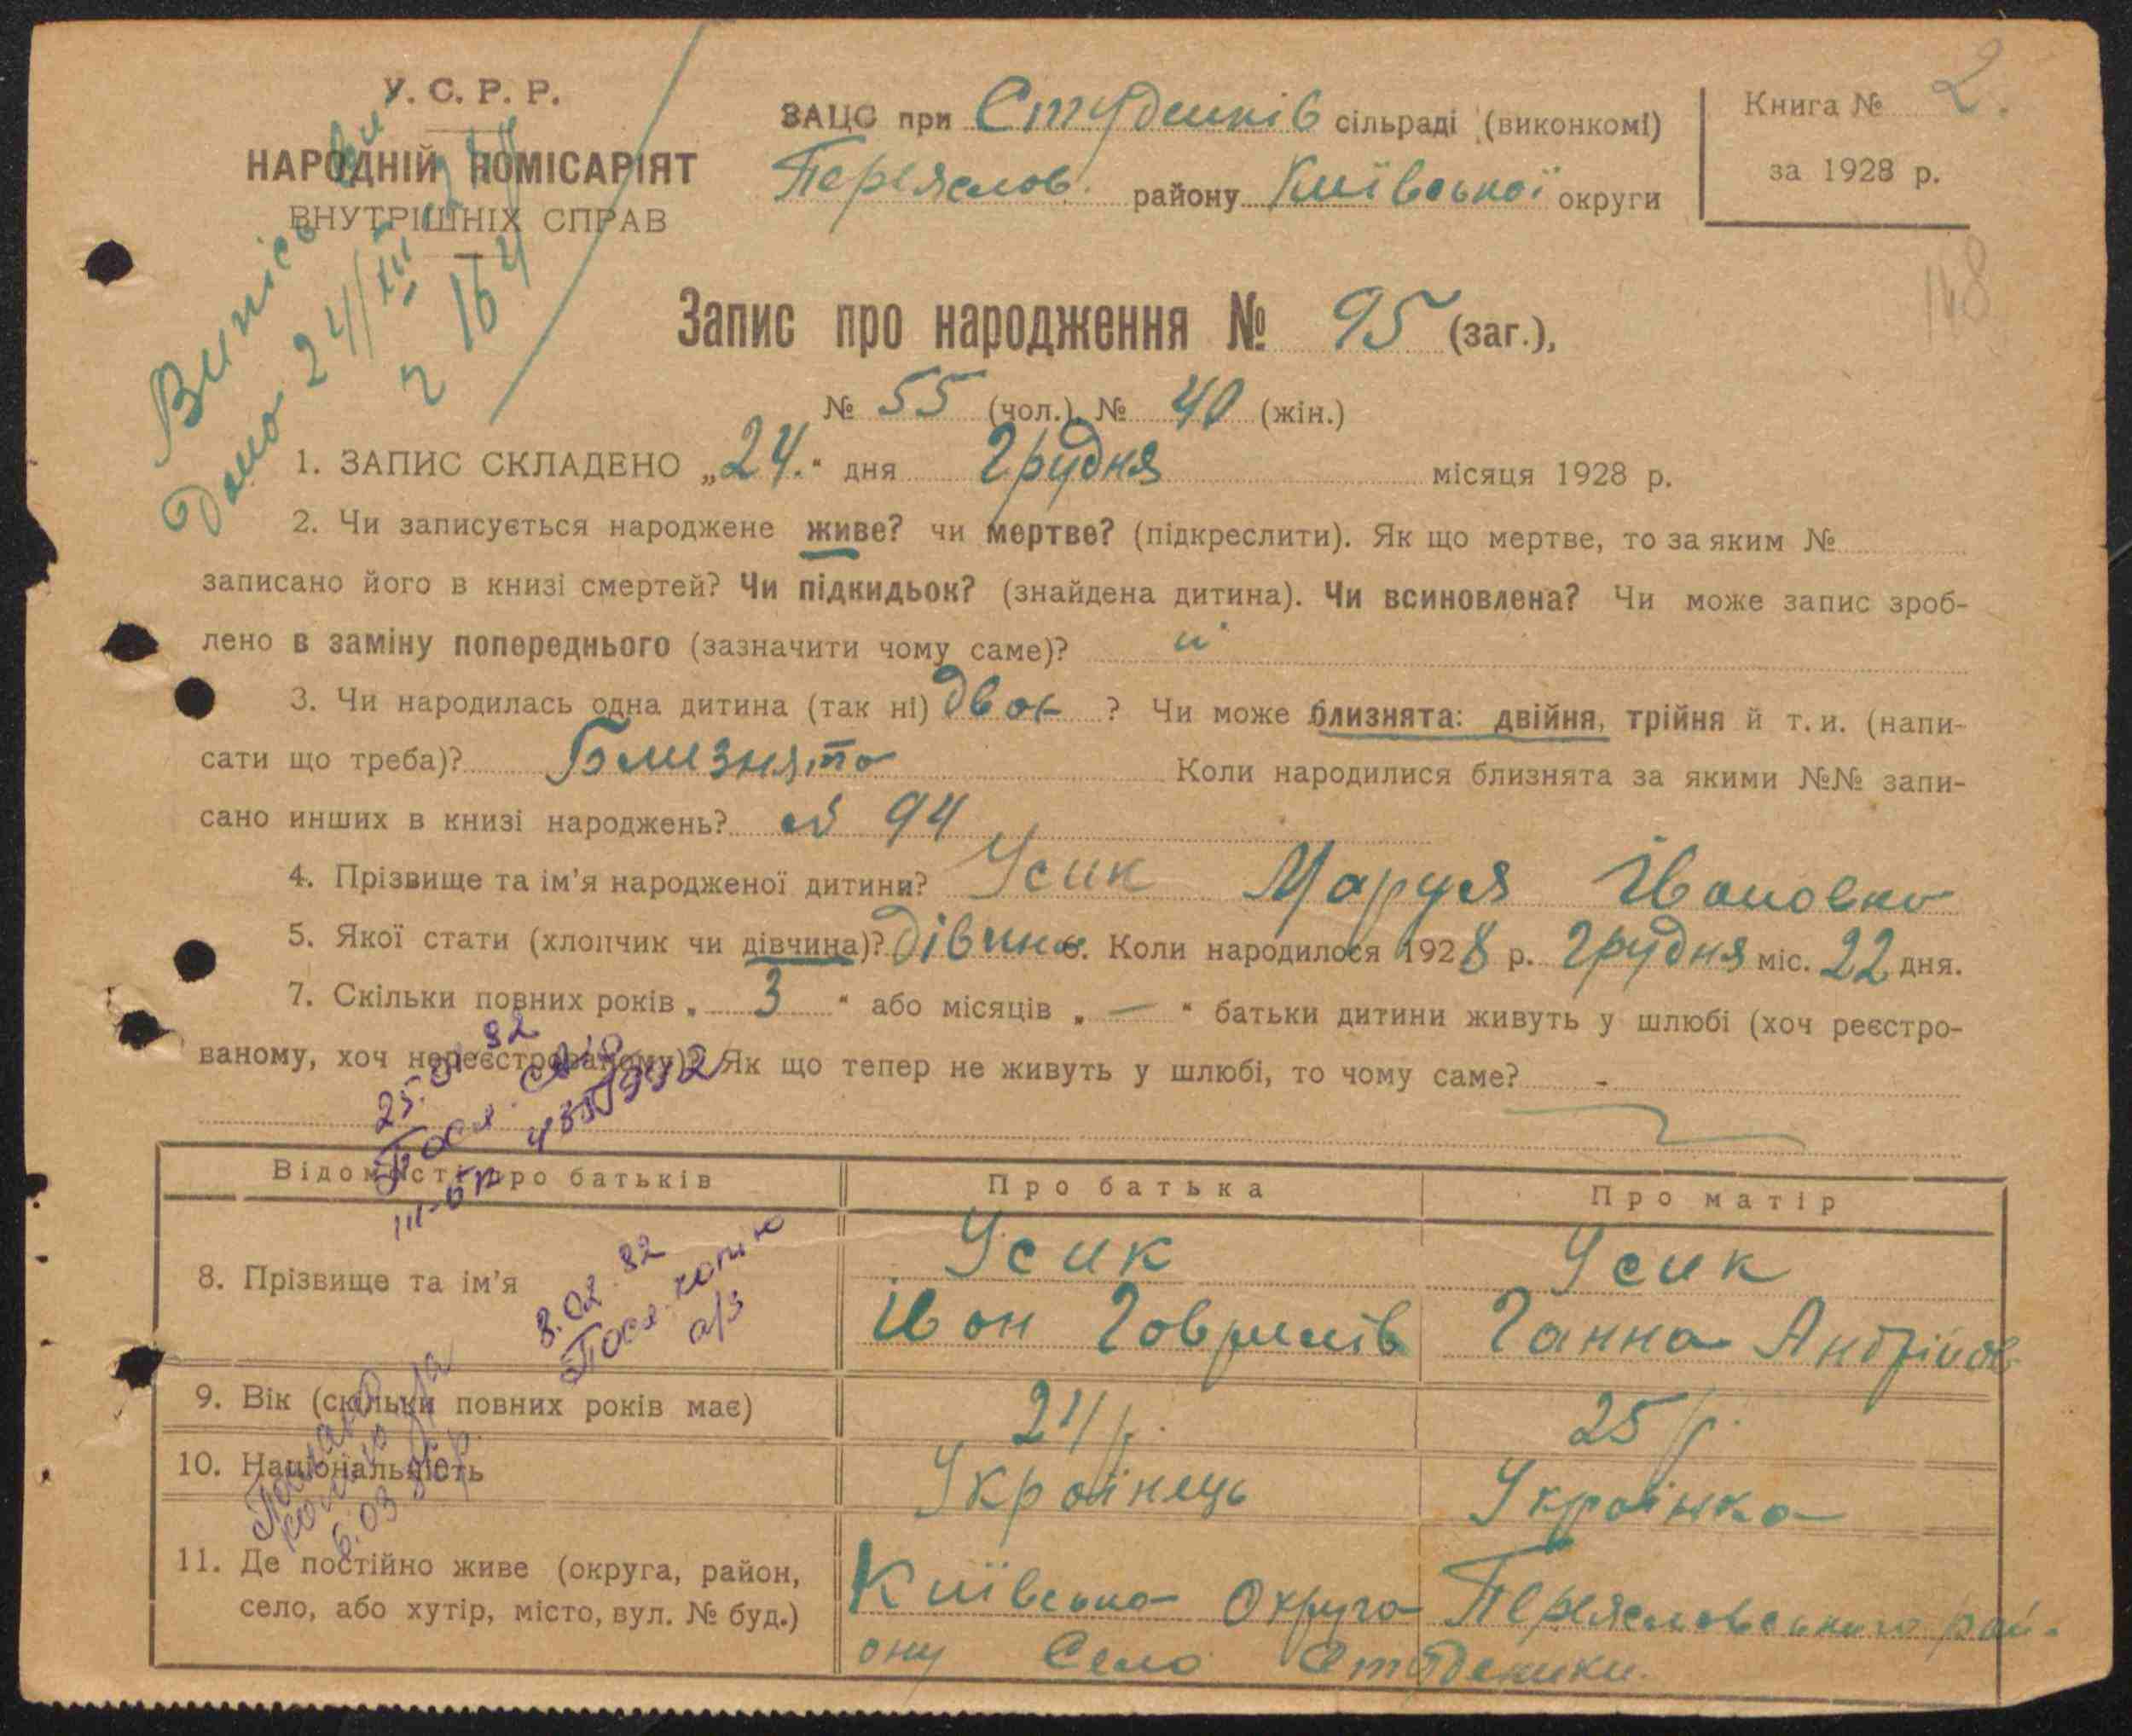 У. С. Р. Р.
НАРОДНІЙ КОМІСАРІЯТ
ВНУТРІШНІХ СПРАВ
ЗАЦС при Студенків сільраді (виконкомі)
Переяслов. району Київської округи
Книга № 2.
за 1928 р.
148
Дано 24/III
164
Запис про народження № 95 (заг.),
№ 55 (чол.), № 40 (жін.)
1. ЗАПИС СКЛАДЕНО „24.“ дня Грудня місяця 1928 р.
2. Чи записується народжене живе? чи мертве? (підкреслити). Як що мертве, то за яким №
записано його в книзі смертей? Чи підкидьок? (знайдена дитина). Чи всиновлена? Чи може запис зроб-
лено в заміну попереднього (зазначити чому саме)?
3. Чи народилась одна дитина (так ні) двох ? Чи може близнята: двійня, трійня й т. и. (напи-
сати що треба)? Близнята Коли народилися близнята за якими №№ запи-
сано инших в книзі народжень? № 94
4. Прізвище та ім'я народженої дитини? Усик Маруся Івановна
5. Якої стати (хлопчик чи дівчина)? дівчина 6. Коли народилося 1928 р. Грудня міс. 22 дня.
7. Скільки повних років „ 3 “ або місяців „ — “ батьки дитини живуть у шлюбі (хоч реєстро-
ваному, хоч нереєстрованому)? Як що тепер не живуть у шлюбі, то чому саме? -
Відомості про батьків Про батька Про матір
8. Прізвище та ім'я Усик Усик
Іван Гаврилів Ганна Андріїов
8.02.92
копию
9. Вік (скільки повних років має) 24 р. 25 р.
10. Національність Українець Українка
11. Де постійно живе (округа, район, Київська Округа Переяславського рай-
село, або хутір, місто, вул. № буд.) ону Село Студеники.